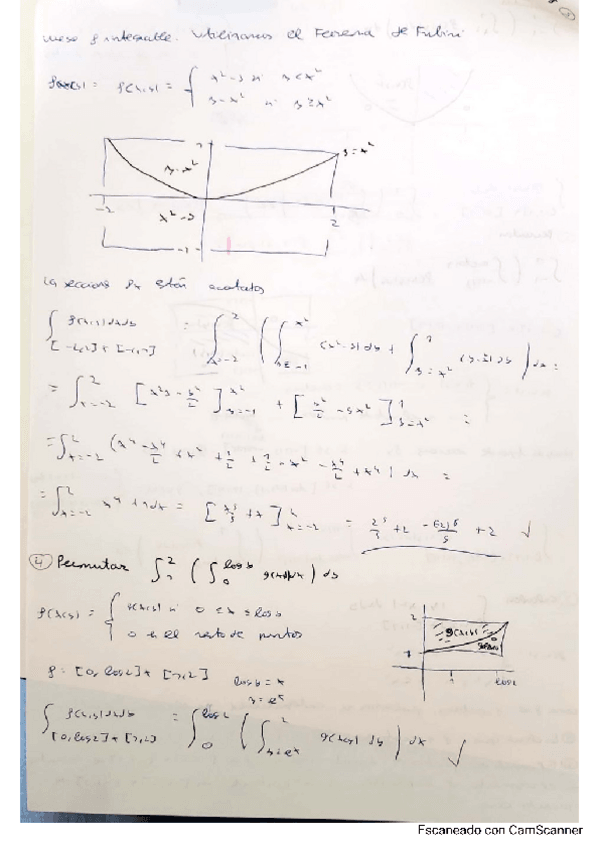 integrable. Utilizamos el Teorema de Fubini
f(x,y) = { x²-y si y<x²
y-x² si y≥x²
1
y=x²
y-x²
-2
x²-y
2
-1
Las secciones fx están acotadas
∫ f(x,y)dxdy = ∫_{x=-2}^{2} ( ∫_{y=-1}^{x²} (x²-y)dy + ∫_{y=x²}^{1} (y-x²)dy ) dx =
[-2,2]×[-1,1]
= ∫_{x=-2}^{2} [x²y - y²/2]_{y=-1}^{x²} + [y²/2 - yx²]_{y=x²}^{1} =
= ∫_{x=-2}^{2} (x⁴ - x⁴/2 + x² + 1/2 + 1/2 - x² - x⁴/2 + x⁴) dx =
= ∫_{x=-2}^{2} x⁴ + 1 dx = [x⁵/5 + x]_{x=-2}^{2} = 2⁵/5 + 2 - (-2)⁵/5 + 2 ✓
④ Permutar ∫_1^2 ( ∫_0^{log y} g(x,y)dx ) dy
f(x,y) = { g(x,y) si 0≤x≤log y
0 en el resto de puntos
2
g(x,y)
1
1
log 2
f: [0, log 2] × [1,2]
log y = x
y = eˣ
∫ f(x,y)dxdy = ∫_0^{log 2} ( ∫_{y=eˣ}^{2} g(x,y) dy ) dx ✓
[0, log 2] × [1,2]
Escaneado con CamScanner